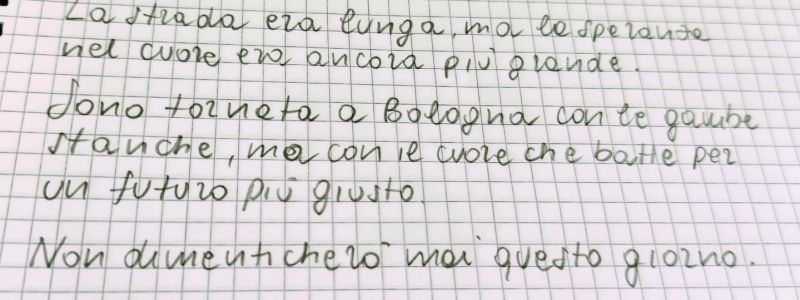 La strada era lunga, ma la speranza
nel cuore era ancora più grande.
Sono tornata a Bologna con le gambe
stanche, ma con il cuore che batte per
un futuro più giusto.
Non dimenticherò mai questo giorno.